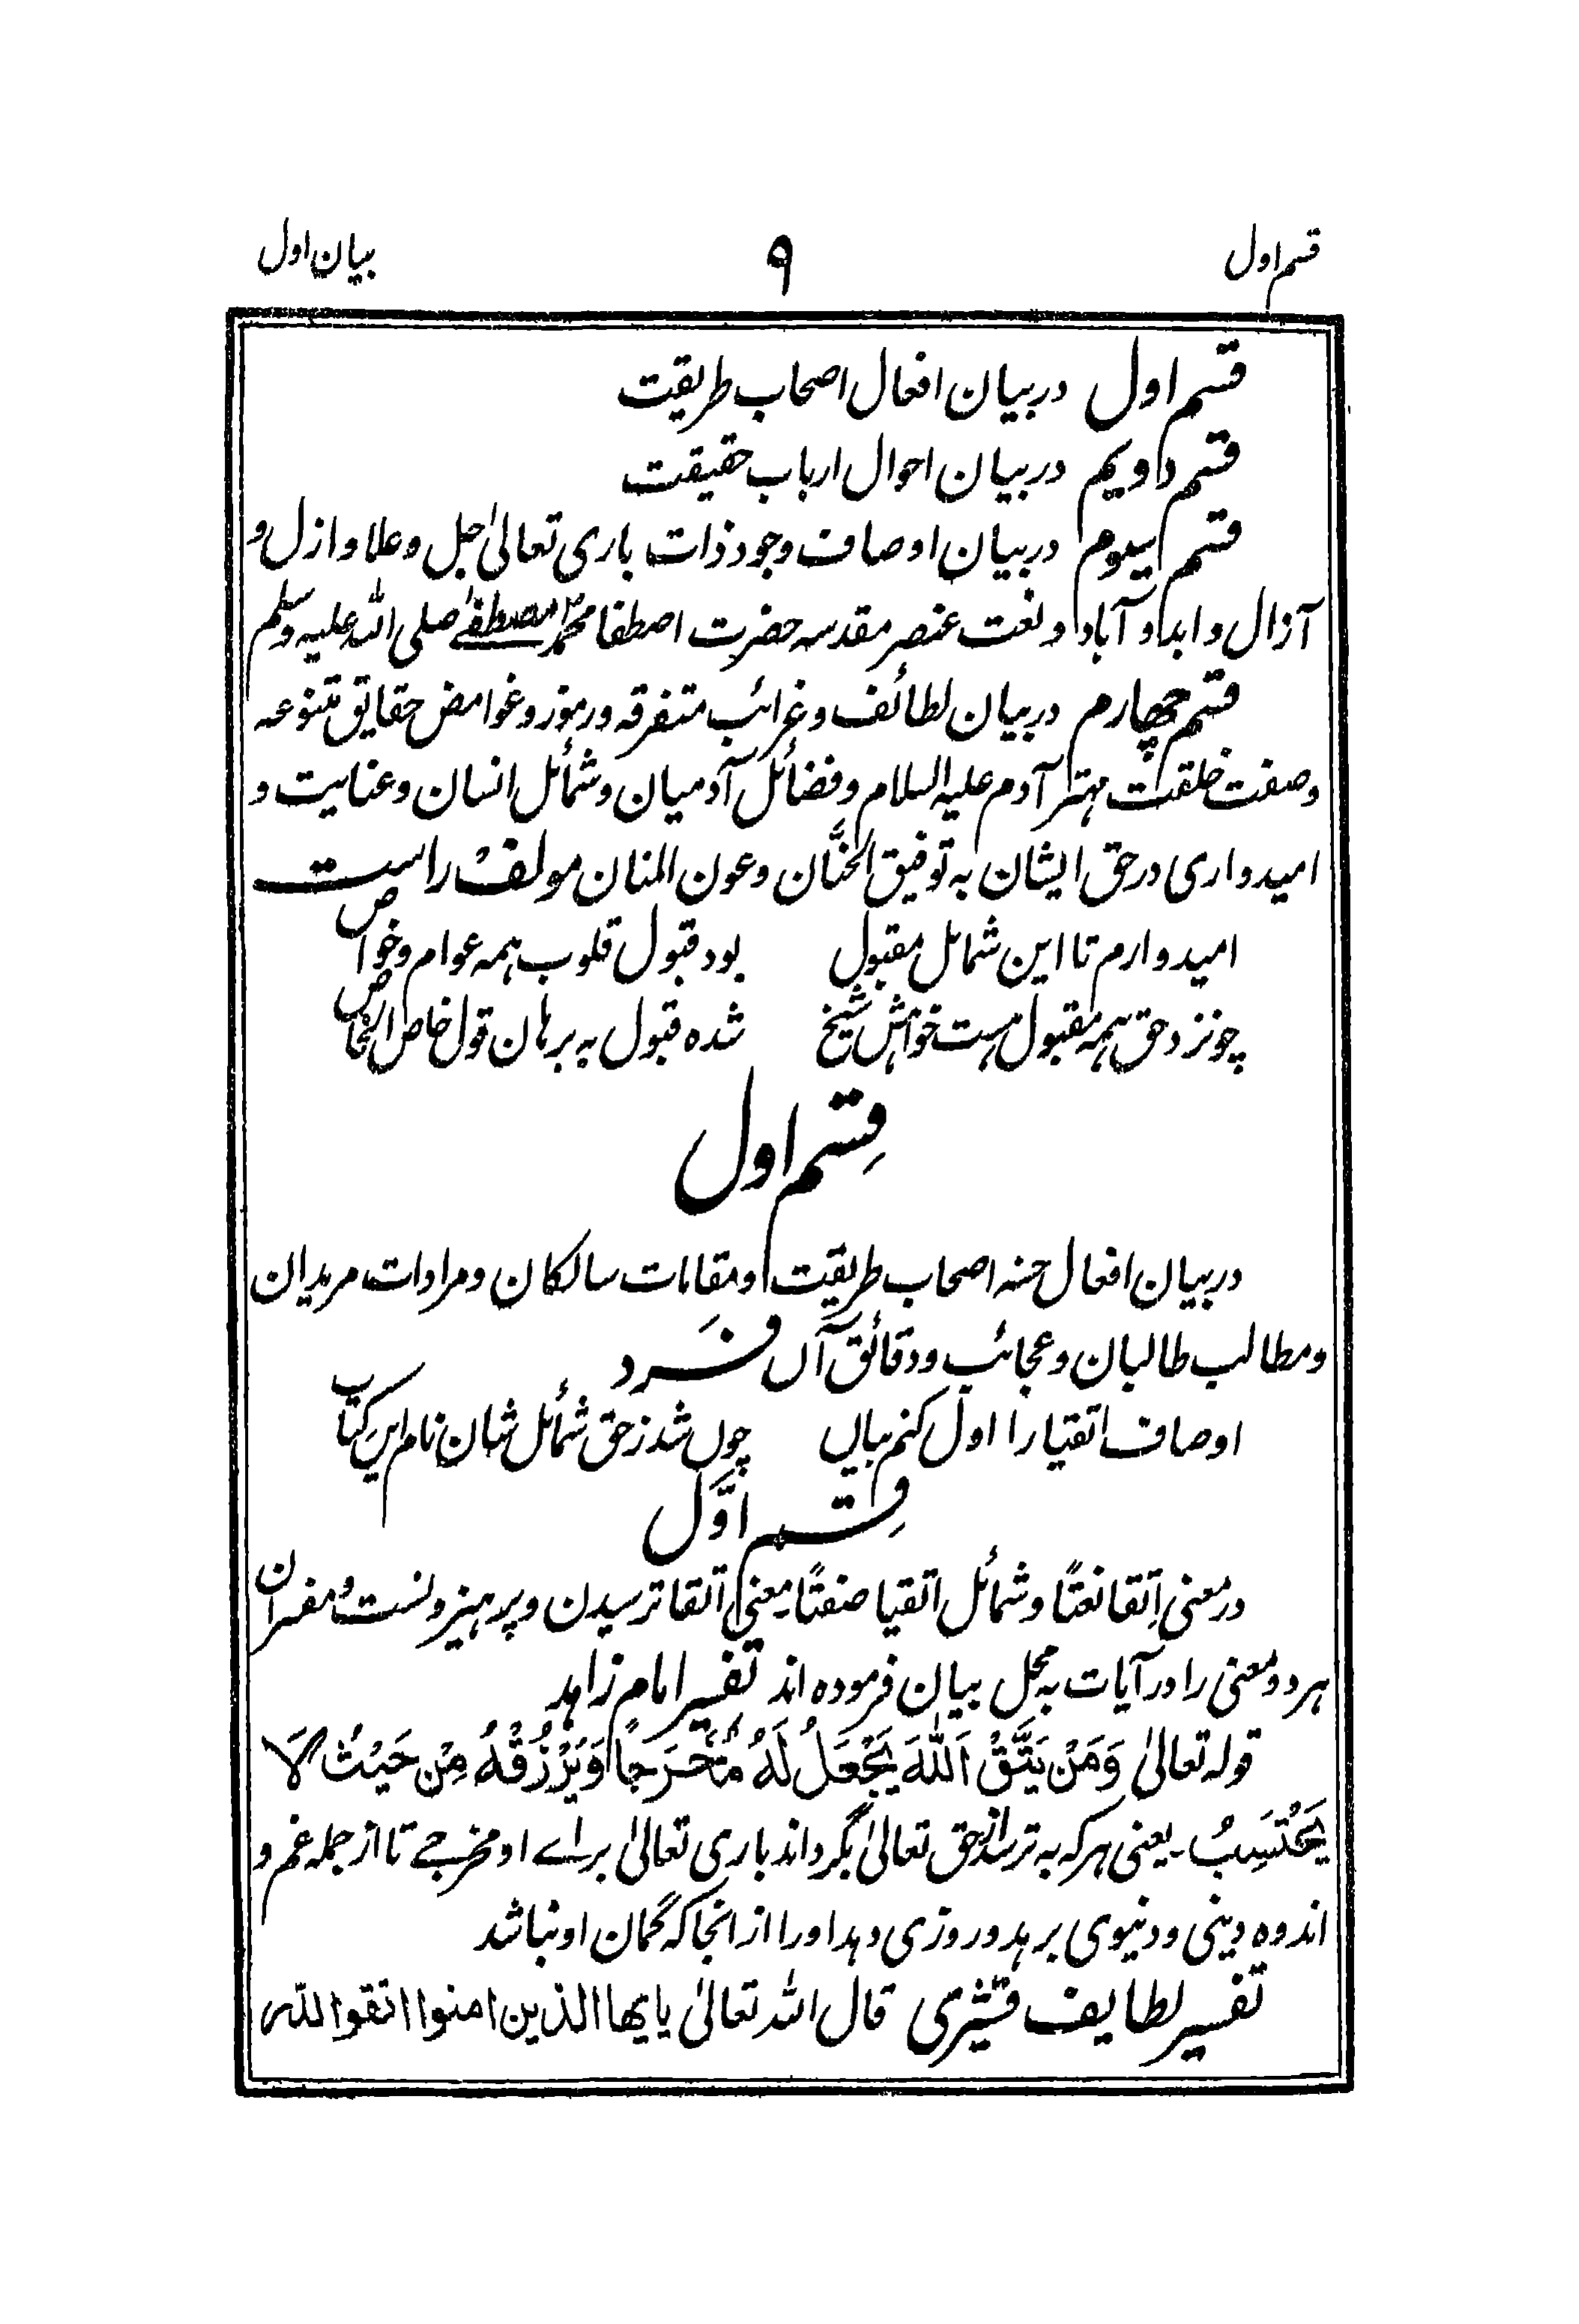 قسم اول ۹ بیان اول
قسم اول در بیان افعال اصحاب طریقت
قسم دویم در بیان احوال ارباب حقیقت
قسم سیوم در بیان اوصاف وجود ذات باری تعالیٰ جل وعلا و ازل و
آزال و ابد و آباد و نعت عنصر مقدسه حضرت اصطفا محمدؐ مصطفےٰ صلی الله علیه وسلم
قسم چهارم در بیان لطائف و غرائب متفرقه و رموز و غوامض حقایق متنوعه
و صفت خلقت مهتر آدم علیه السلام و فضائل آدمیان و شمائل انسان و عنایت و
امیدواری در حق ایشان به توفیق الحنَّان و عون المنان مولف راست
امیدوارم تا این شمائل مقبول بود قبول قلوب همه عوام و خواص
چو نزد حق همه مقبول هست خواهش شیخ شده قبول به برهان قول خاص الخاص
قِسم اول
در بیان افعال حسنه اصحاب طریقت و مقامات سالکان و مرادات مریدان
و مطالب طالبان و عجائب و دقائق آں فَرد
اوصاف اتقیا را اول کنم بیاں چوں شد ز حق شمائل شان نام ایں کتاب
قِسم اوَّل
در معنی اِتقا نعتًا و شمائل اتقیا صفتًا۔ معنی اتقا ترسیدن و پرهیز ونست و مفسران
هر دو معنی را در آیات به محل بیان فرموده اند تفسیر امام زاهد
قوله تعالیٰ وَمَنْ یَتَّقْ اَللّٰهَ یَجْعَلُ لَهُ مُخْرَجًا وَیَرْزُقْهُ مِنْ حَیْثُ لَا
یَحْتَسِبُ۔ یعنی هر که به ترسد از حق تعالیٰ بگرداند باری تعالیٰ براے او مخرجے تا از جمله غم و
اندوه دینی و دنیوی برهد و روزی دهد او را از انجا که گمان او نباشد
تفسیر لطایف قشیری قال الله تعالیٰ یایها الذین امنوا اتقوا الله